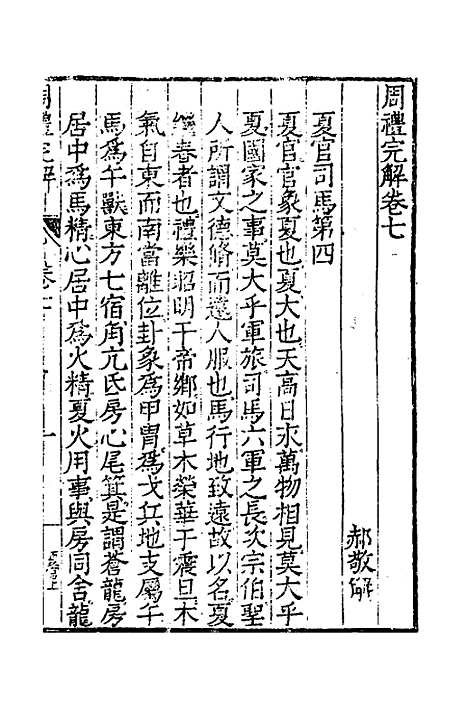 周禮完解卷七
郝敬解
夏官司馬第四
夏官官象夏也夏大也天高日永萬物相見莫大乎
夏國家之事莫大乎軍旅司馬六軍之長次宗伯聖
人所謂文德脩而遠人服也馬行地致遠故以名夏
繼春者也禮樂昭明于帝鄉如草木榮華于震旦木
氣自東而南當離位卦象爲甲胄爲戈兵地支屬午
馬爲午獸東方七宿角亢氐房心尾箕是謂蒼龍房
居中爲馬精心居中爲火精夏火用事與房同舍龍
周禮完解
卷七